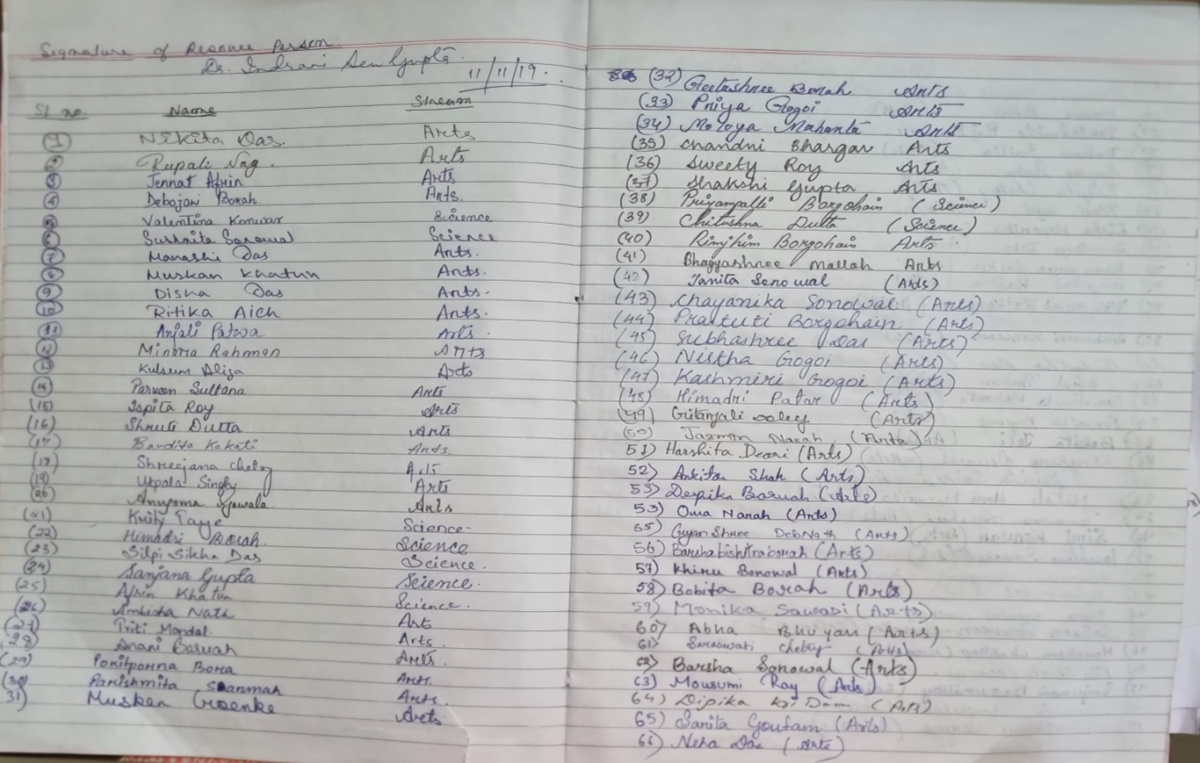 Signature of Resource Person
Dr. Indrani Sen Gupta.
11/11/19.
Sl no. Name Stream
1 Nikita Das. Arts
2 Rupali Nag. Arts
3 Jennat Afrin Arts
4 Debojani Borah. Arts.
5 Valentina Konwar Science
6 Sushmita Sonowal Science
7 Manashi Das Arts.
8 Muskan Khatun Arts.
9 Disha Das Arts.
10 Ritika Aich Arts.
11 Anjali Patwa Arts
12 Minora Rahman Arts
13 Kulsum Aliza Arts
14 Parveen Sultana Arts
(15) Ispita Roy Arts
(16) Shruti Dutta Arts
(17) Bandita Kakati Arts.
(18) Shreejana Chetry Arts
(19) Utpala Singh Arts
(20) Anupoma Gowala Arts
(21) Kuily Taye Science.
(22) Himadri Borah. Science
(23) Silpi Sikha Das Science.
(24) Sanjana Gupta Science.
(25) Afrin Khatun Science.
(26) Ambisha Nath Arts
(27) Priti Mondal. Arts.
(28) Anani Baruah Arts.
(29) Poriporna Bora Arts.
(30) Parishmita Sarmah Arts.
31) Muskan Goenka Arts
(32) Geetashree Borah Arts
(33) Priya Gogoi Arts
(34) Moloya Mahanta Arts
(35) Chandni Bhargav Arts
(36) Sweety Roy Arts
(37) Shakshi Gupta Arts
(38) Priyampalli Borgohain (Science)
(39) Dutta (Science)
(40) Rimjhim Borgohain Arts
(41) Bhagyashree Mallah Arts
(42) Janita Senowal (Arts)
(43) Chayanika Sonowal (Arts)
(44) Prastuti Borgohain (Arts)
(45) Subhashree Das (Arts)
(46) Nistha Gogoi (Arts)
(47) Kashmiri Gogoi (Arts)
(48) Himadri Patar (Arts)
(49) Gitanjali (Arts)
(50) Jasmin Narah (Arts)
51) Harshita Deori (Arts)
52) Ankita Shah (Arts)
53) Deepika Baruah (Arts)
53) Oma Narah (Arts)
55) Gyan Shree DebNath (Arts)
56) Barshabishitraborah (Arts)
57) Khiru Sonowal (Arts)
58) Bobita Borah (Arts)
59) Monika Sawasi (Arts)
60) Abha Bhuyan (Arts)
61) Saraswati Chetry (Arts)
62) Barsha Sonowal (Arts)
63) Mousumi Ray (Arts)
64) Dipika (Arts)
65) Sarita Goutam (Arts)
66) Neha Das (Arts)